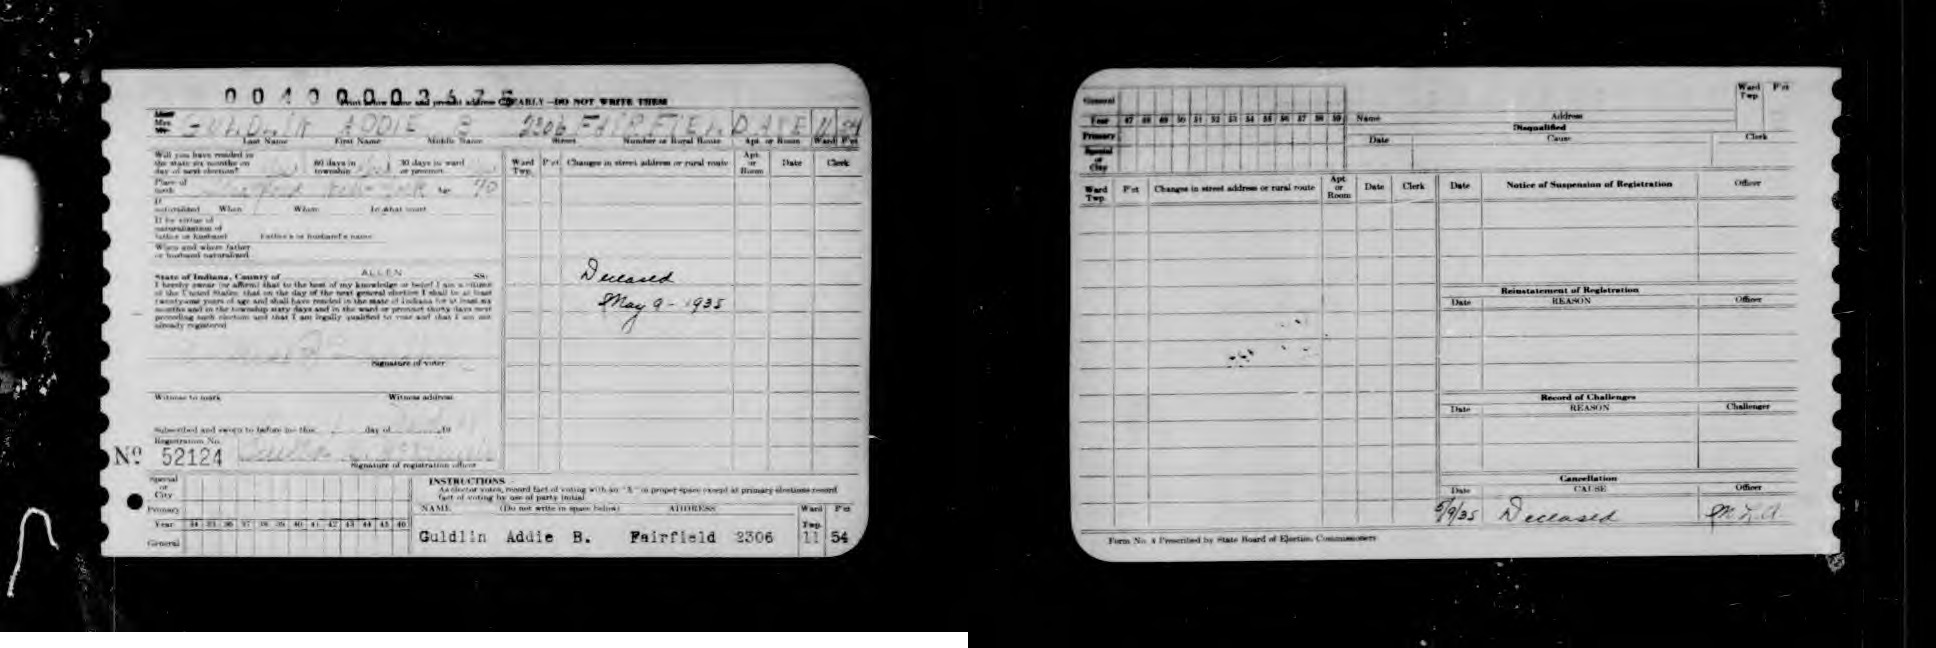 00400003475
Print below name and present address CLEARLY—DO NOT WRITE THEM
Mrs. GULDLIN ADDIE B 2306 FAIRFIELD AVE 11 54
Last Name First Name Middle Name Street Number or Rural Route Apt. or Room Ward P'ct
Will you have resided in
the state six months on 60 days in 30 days in ward
day of next election? township or precinct
Place of
birth
If
naturalized When Where In what court
If by virtue of
naturalization of
father or husband Father's or husband's name
When and where father
or husband naturalized
State of Indiana, County of ALLEN SS:
I hereby swear (or affirm) that to the best of my knowledge or belief I am a citizen
of the United States; that on the day of the next general election I shall be at least
twenty-one years of age and shall have resided in the state of Indiana for at least six
months and in the township sixty days and in the ward or precinct thirty days next
preceding such election and that I am legally qualified to vote and that I am not
already registered
Signature of voter
Witness to mark Witness address
Subscribed and sworn to before me this day of 19
Registration No.
No 52124
Signature of registration officer
Ward Twp. P'ct Changes in street address or rural route Apt. or Room Date Clerk
Deceased
May 9 - 1935
Special
or
City
Primary
Year 34 35 36 37 38 39 40 41 42 43 44 45 46
General
INSTRUCTIONS
As elector votes, record fact of voting with an "X" in proper space except at primary elections record
fact of voting by use of party initial
NAME (Do not write in space below) ADDRESS Ward Twp. P'ct
Guldlin Addie B. Fairfield 2306 11 54
General
Year 47 48 49 50 51 52 53 54 55 56 57 58 59
Primary
Special
or
City
Name Address Ward Twp. P'ct
Disqualified
Date Cause Clerk
Ward Twp. P'ct Changes in street address or rural route Apt. or Room Date Clerk
Date Notice of Suspension of Registration Officer
Reinstatement of Registration
Date REASON Officer
Record of Challenges
Date REASON Challenger
Cancellation
Date CAUSE Officer
5/9/35 Deceased M L A
Form No. 4 Prescribed by State Board of Election Commissioners